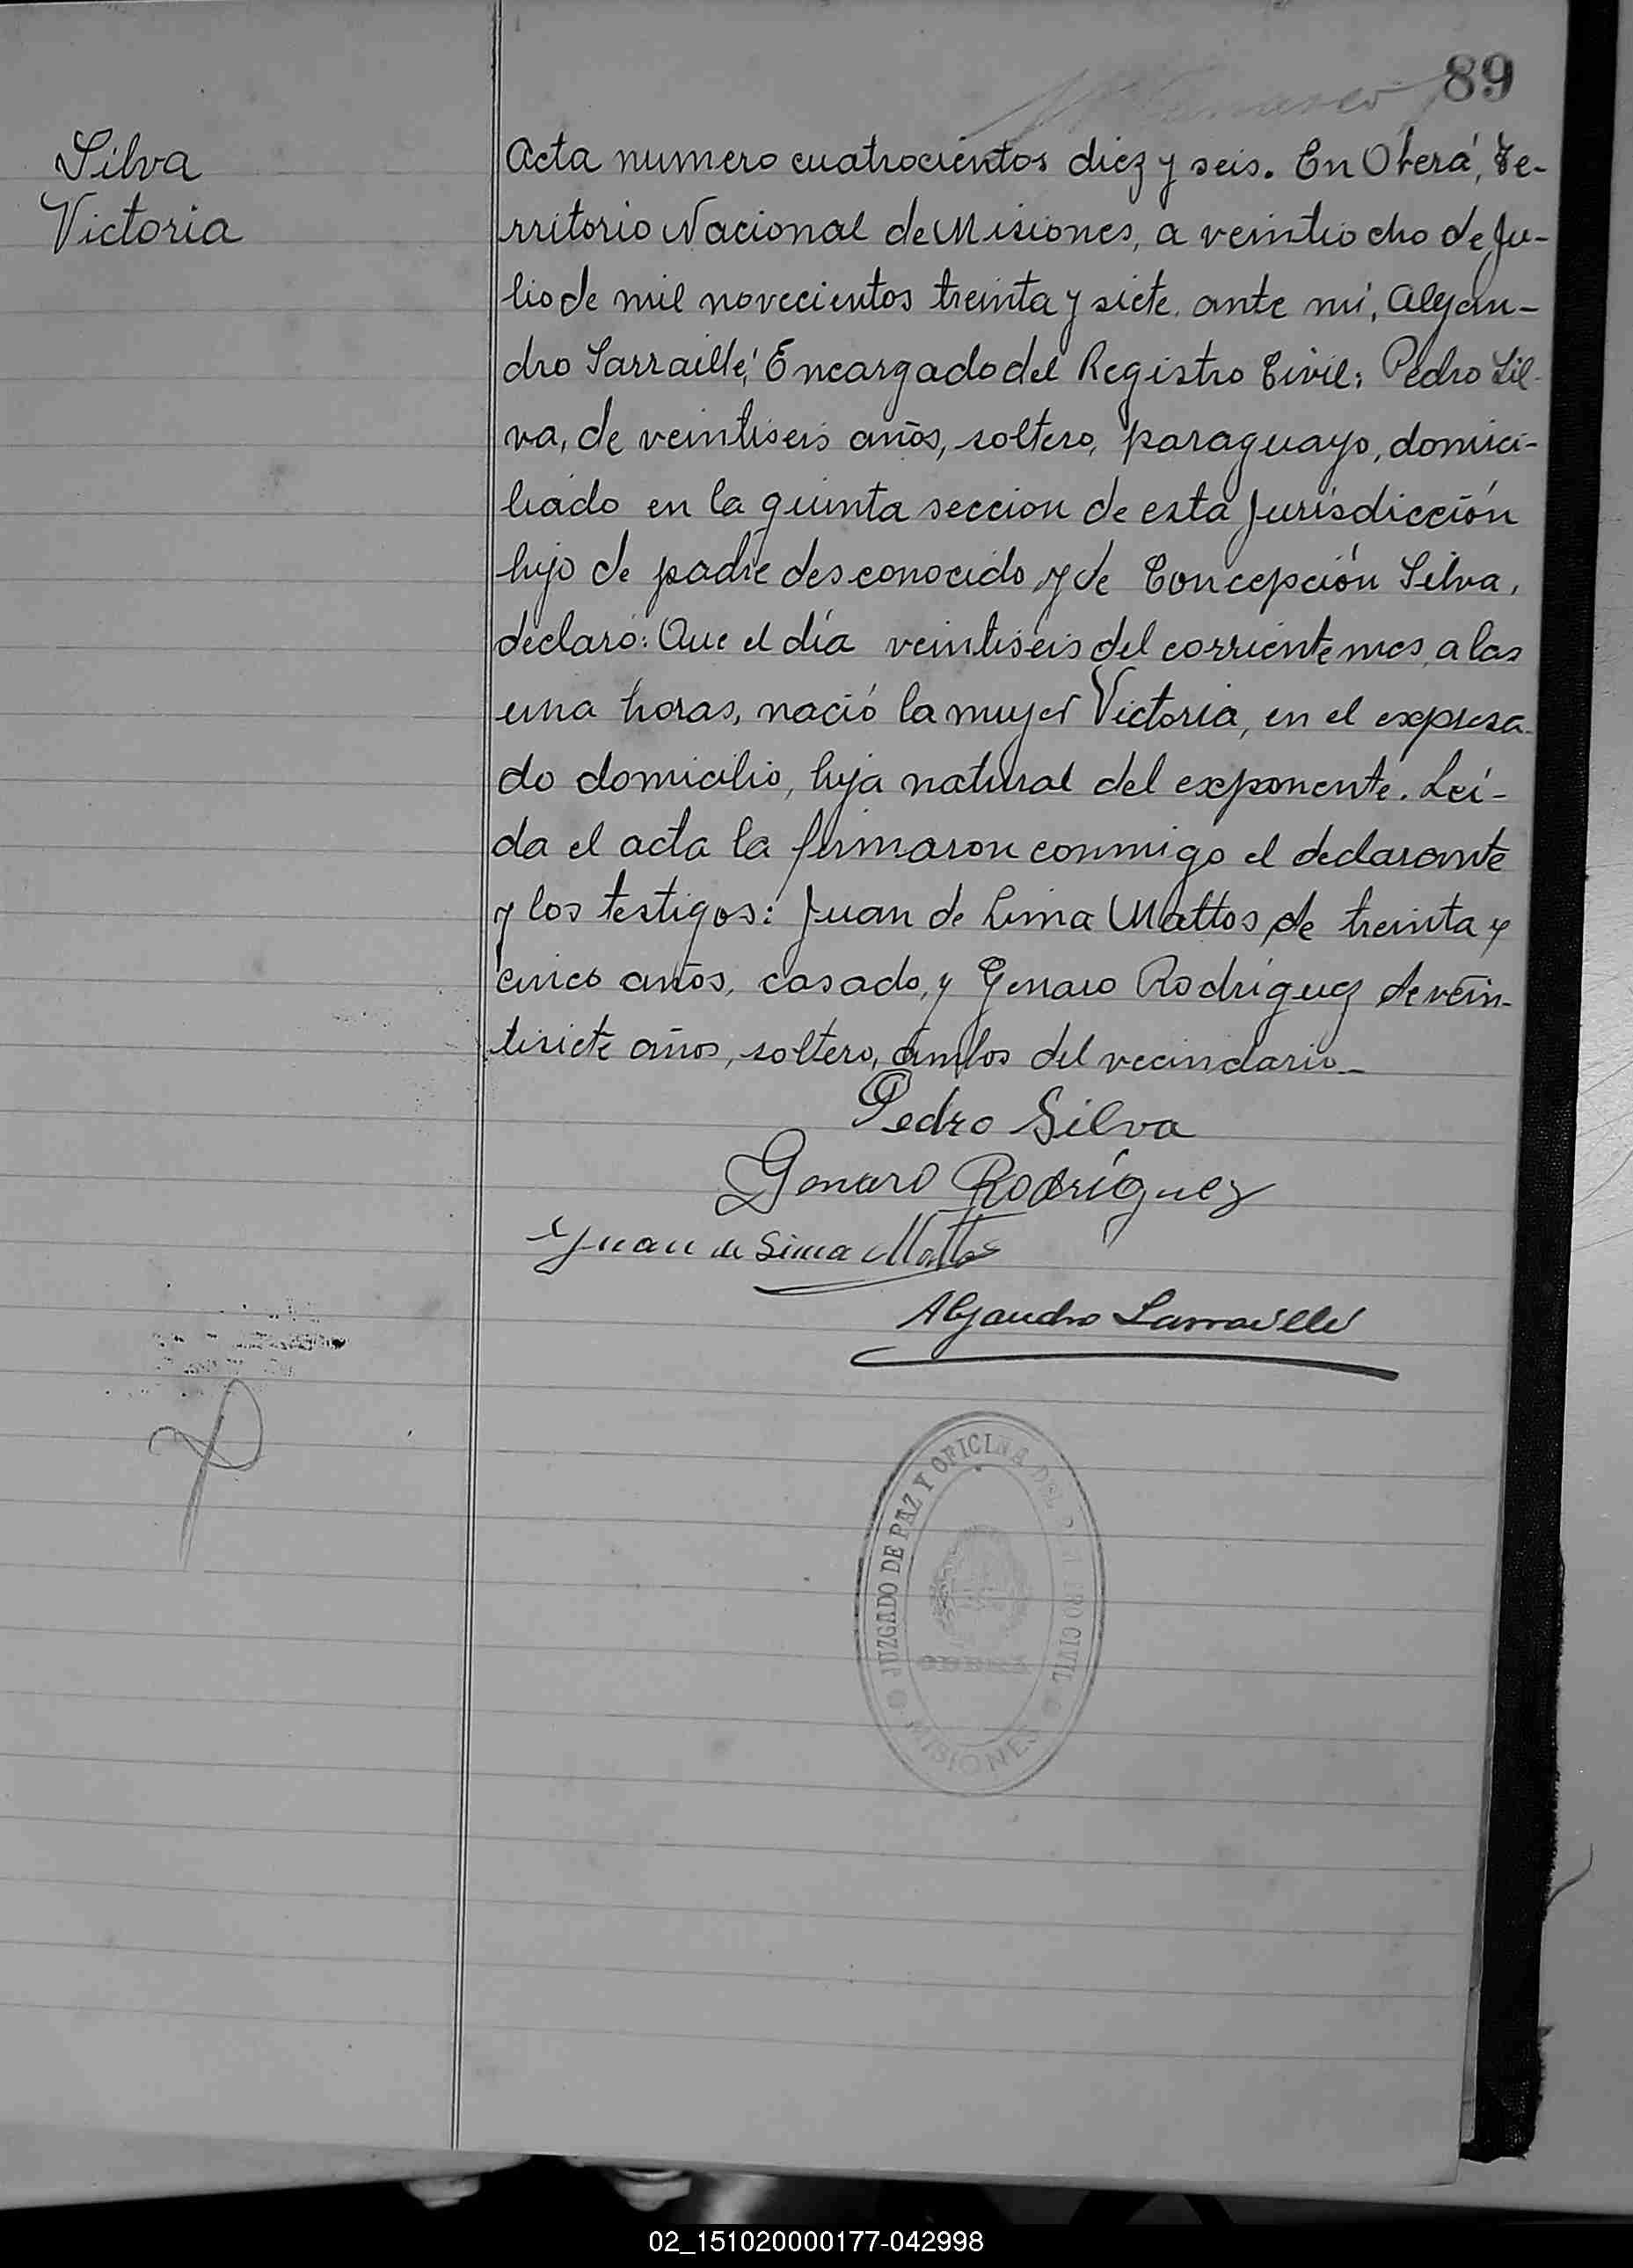 89
Silva
Victoria
Acta numero cuatrocientos diez y seis. En Oberá, Te-
rritorio Nacional de Misiones, a veintiocho de Ju-
lio de mil novecientos treinta y siete, ante mí, Alejan-
dro Sarraillé, Encargado del Registro Civil: Pedro Sil-
va, de veintiseis años, soltero, paraguayo, domici-
liado en la quinta seccion de esta Jurisdicción
hijo de padre desconocido y de Concepción Silva,
declaró: Que el día veintiseis del corriente mes, a las
una horas, nació la mujer Victoria, en el expresa-
do domicilio, hija natural del exponente. Leí-
da el acta la firmaron conmigo el declarante
y los testigos: Juan de Lima Mattos de treinta y
cinco años, casado, y Genaro Rodríguez de vein-
tisiete años, soltero, ambos del vecindario_
Pedro Silva
Genaro Rodríguez
Juan de Lima Mattos
Alejandro Sarraillé
JUZGADO DE PAZ Y OFICINA DEL REGISTRO CIVIL
OBERÁ
MISIONES
02_151020000177-042998